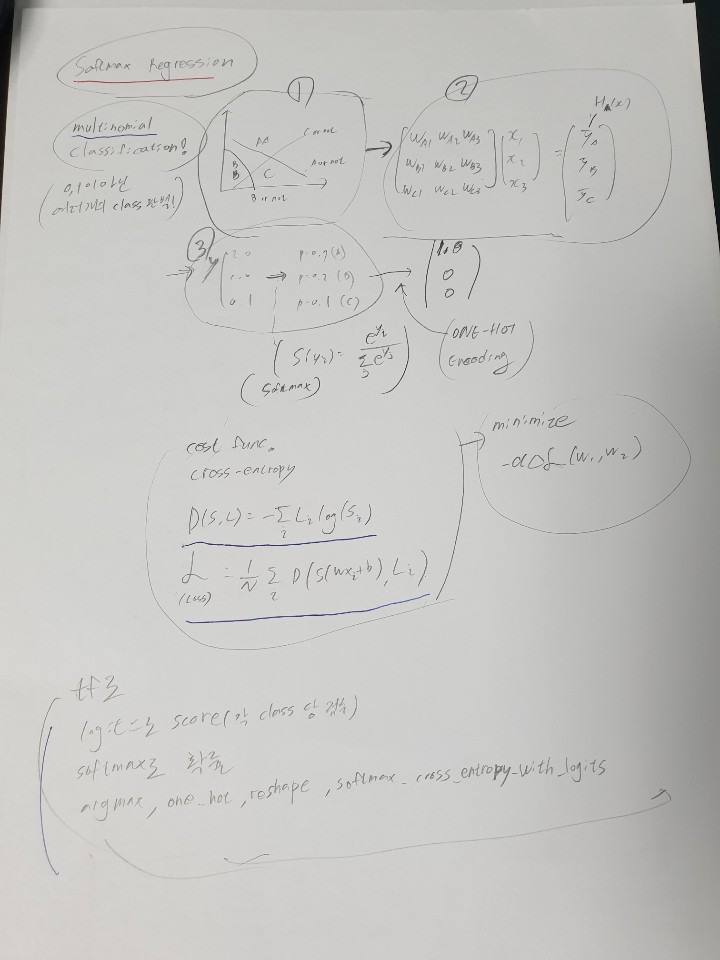 Softmax Regression
multinomial
classification!
(0, 1이 아닌
여러개의 class 판별!)
①
AA
C or not
A or not
B
B
C
B or not
②
WA1 WA2 WA3
WB1 WB2 WB3
WC1 WC2 WC3
x1
x2
x3
=
ȳA
ȳB
ȳC
③
y
2.0
0.1
p=0.2 (B)
p=0.1 (C)
1.0
0
0
S(yi) = e^yi / Σj e^yj
(softmax)
(ONE-HOT
Encoding)
cost func.
cross-entropy
D(S,L) = -Σi Li log(Si)
L = 1/N Σi D(S(wxi+b), Li)
(Loss)
minimize
-α△L(w1, w2)
tf로
logit=로 score(각 class 당 점수)
softmax로 확률
argmax, one_hot, reshape, softmax_cross_entropy_with_logits